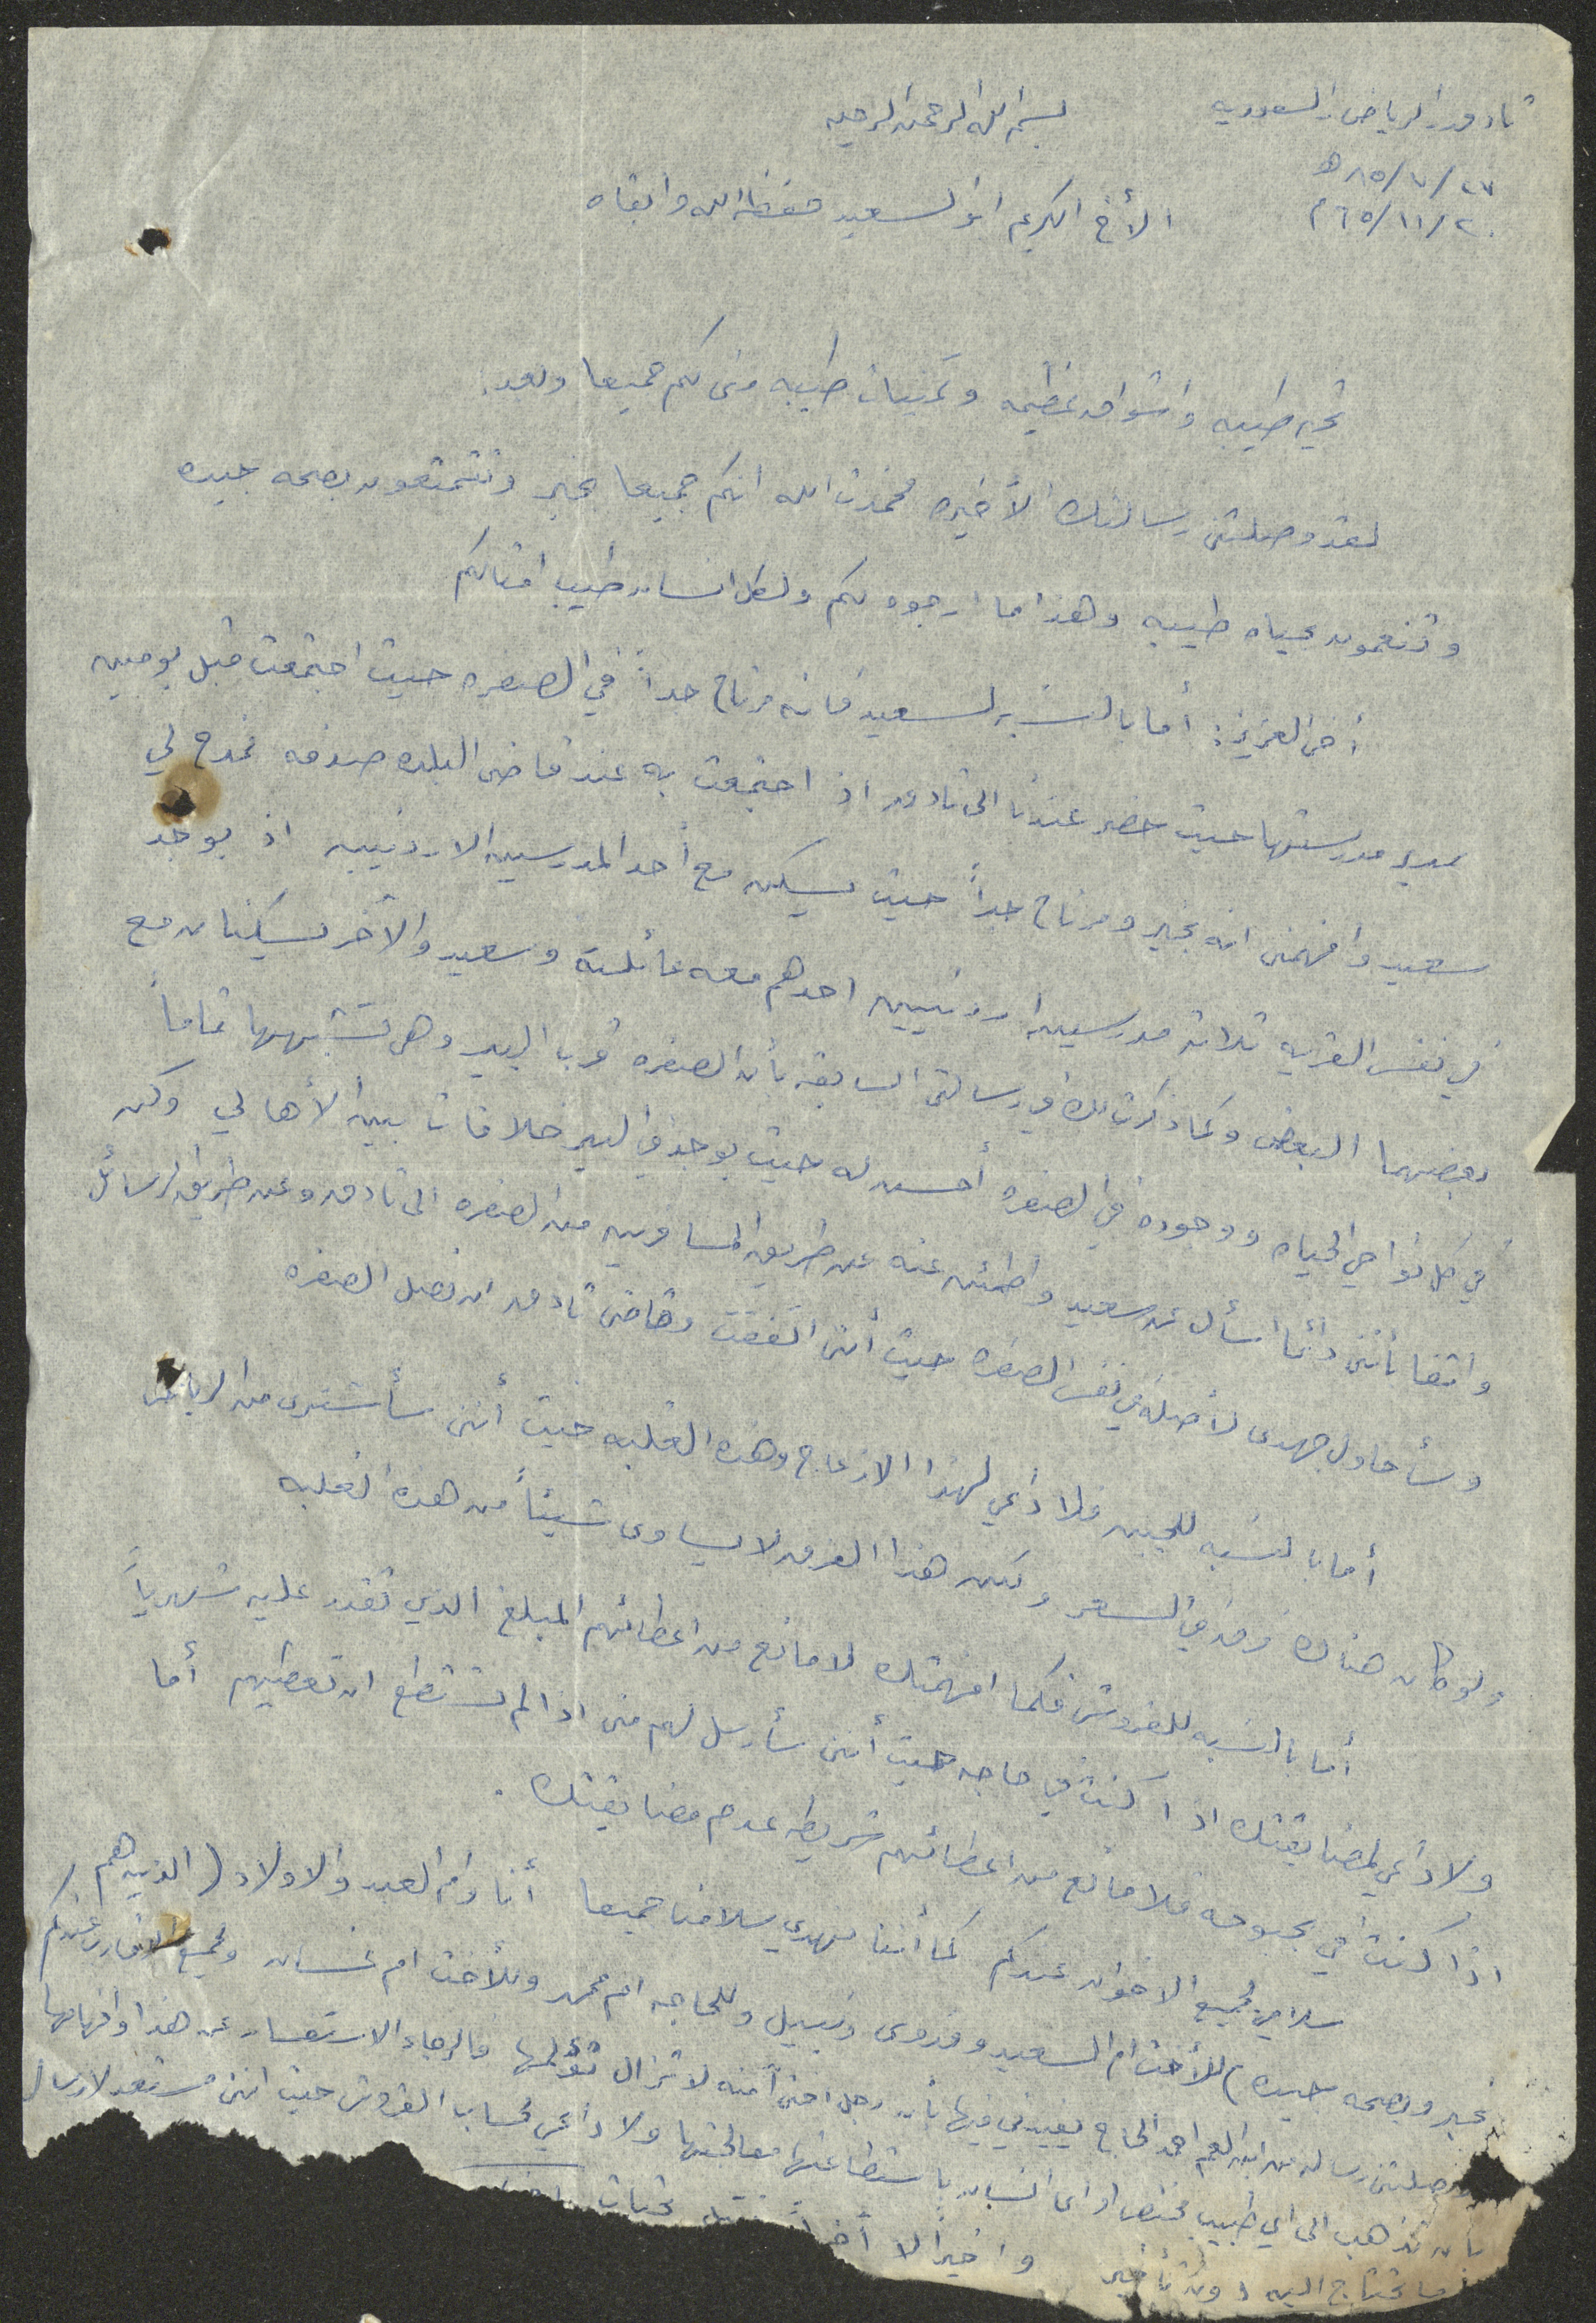 بسم الله الرحمن الرحيم
تادق / الرياض / السعوديه
٢٧/٧/٨٥ هـ
٢٠/١١/٦٥ م
الأخ الكريم ابو السعيد حفظه الله وابقاه
تحيه طيبه واشواق عظيمه وتمنيات طيبه مني لكم جميعا وبعد.
لقد وصلتني رسالتك الأخيره فحمدت الله انكم جميعا بخير وتتمتعون بصحه جيده
وتنعمون بحياه طيبه وهذا ما ارجوه لكم ولكل انسان طيب امثالكم
أخي العزيز: أما بالنسبه لسعيد فانه مرتاح جداً في الصفره حيث اجتمعت قبل يومين
بمدير مدرستها حيث حضر عندنا الى تادق اذ اجتمعت به عند قاضي البلده صدفه فمدح لي
سعيد وافهمني انه بخير ومرتاح جداً حيث يسكن مع أحد المدرسين الاردنيين اذ يوجد
في نفس القريه ثلاثه مدرسين اردنيين احدهم معه عائلته وسعيد والآخر يسكنان مع
بعضهما البعض وكما ذكرت لك في رسالتي السابقه بأن الصفره قرب البير وهي تشبهها تماماً
في كل نواحي الحياه ووجوده في الصفره أحسن له حيث يوجد في البير خلافات بين الأهالي وكن
واثقا بأنني دائما اسأل عن سعيد واطمئن عنه عن طريق المسافرين من الصفره الى تادق وعن طريق الرسائل
وسأحاول جهدي لأصله في نفس الصفره حيث أنني اتفقت وقاضي تادق ان نصل الصفره
أما بالنسبه للجبن فلا داعي لهذا الازعاج وهذه الغلبه حيث أنني سأشتري من الرياض
ولو كان هناك فرق في السعر ولكن هذا الفرق لا يساوي شيئاً من هذه الغلبه
أما بالنسبه للقروش فكما افهمتك لا مانع من اعطائهم المبلغ الذي تقدر عليه شهرياً
ولا داعي لمضايقتك اذا كنت في حاجه حيث أنني سأرسل لهم مني اذا لم تستطع ان تعطيهم أما
اذا كنت في بحبوحه فلا مانع من اعطائهم شريطه عدم مضايقتك .
سلامي لجميع الاخوان عندكم كما أننا نهدي سلامنا جميعا أنا وام العبد والاولاد ( الذين هم
بخير وبصحه جيده ) للأخت ام السعيد وفدوى ونبيل وللحاجه ام محمد وللأخت ام غسان ولجميع الاقارب عندكم
وصلتني رساله من ابن العم احمد الحاج يفيدني فيها بأن رجل اختي آمنه لا تزال تؤلمها فالرجاء الاستفسار عن هذا وافهامها
بأن تذهب الى اي طبيب مختص او اي انسان باستطاعتها معالجتها ولا داعي لحساب القروش حيث انني مستعد لارسال
ما تحتاج اليه دون تأخير واخيراً لا آخراً تحيات